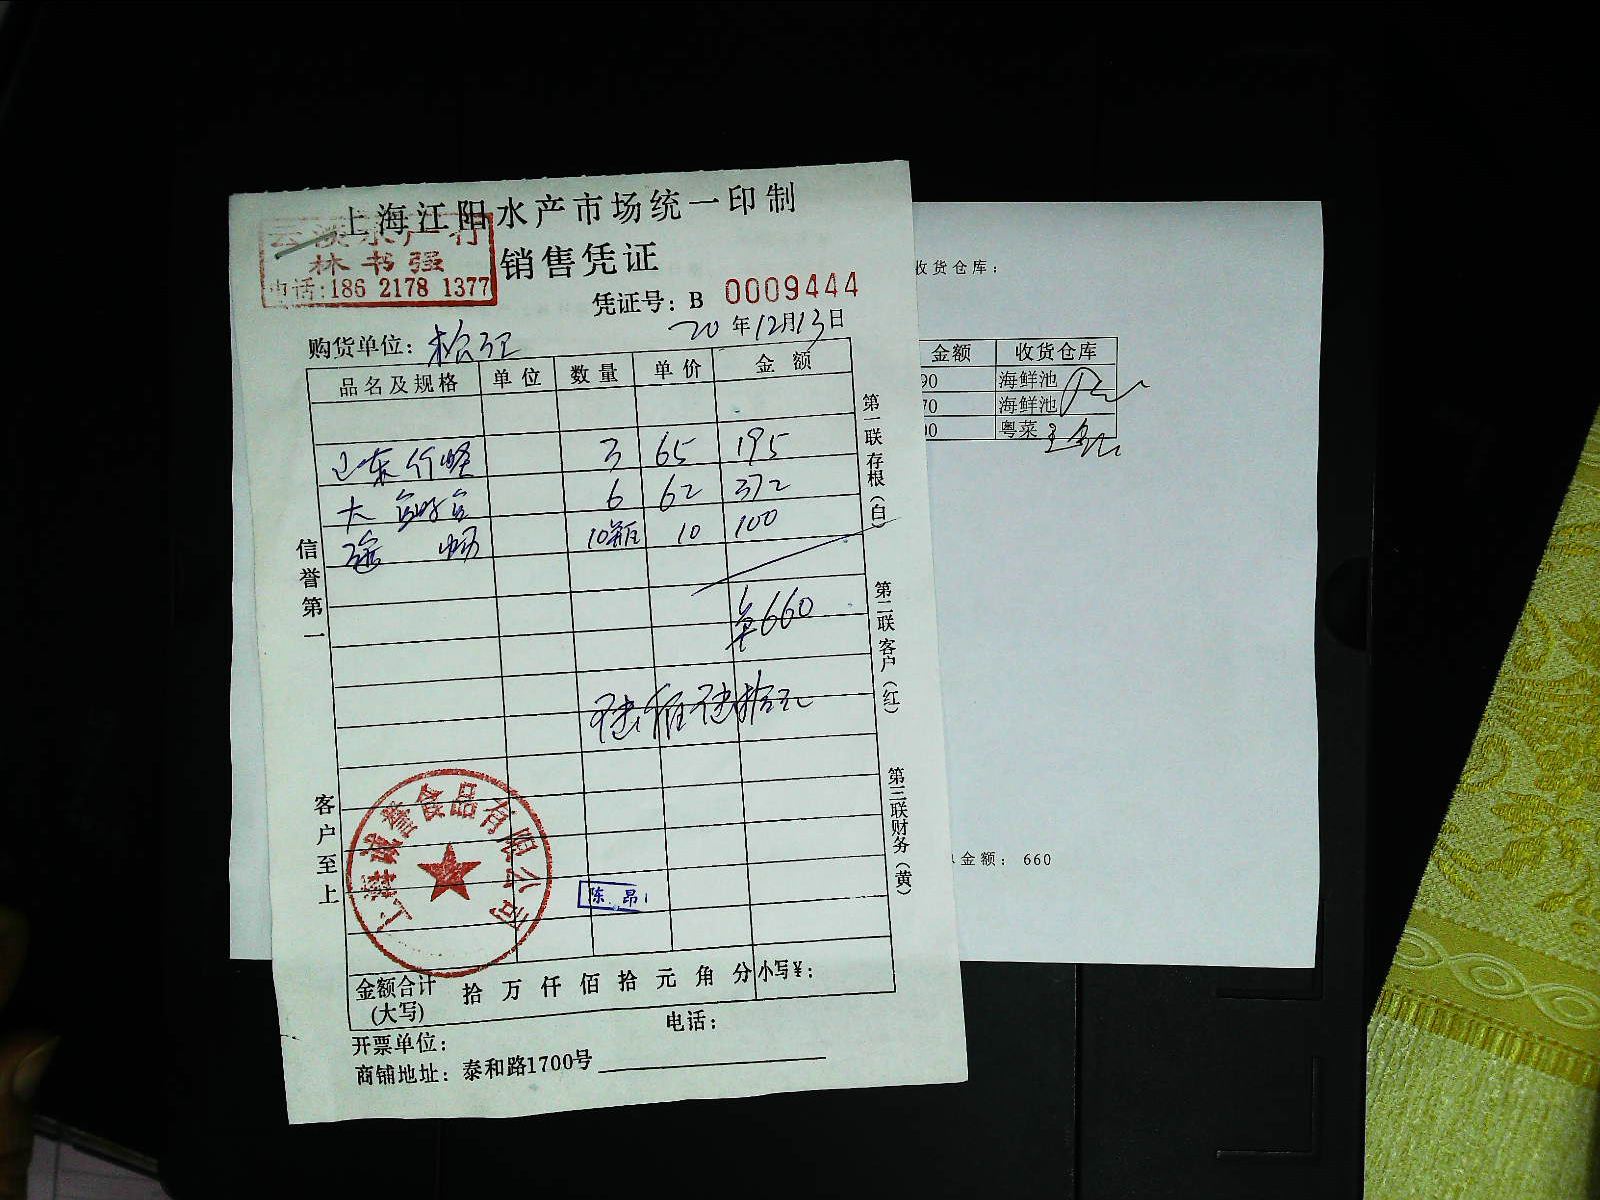 上海江阳水产市场统一印制
水产行
林书强
电话:186 2178 1377
销售凭证
凭证号: B 0009444
购货单位:
20年12月13日
品名及规格 单位 数量 单价 金额
3 65 195
大 6 62 372
10瓶 10 100
660
陆佰陆拾元
信誉第一
客户至上
第一联存根(白)
第二联客户(红)
第三联财务(黄)
上海诚鑫食品有限公司
陈昂
金额合计(大写) 拾 万 仟 佰 拾 元 角 分 小写¥:
开票单位: 电话:
商铺地址: 泰和路1700号
收货仓库:
金额 收货仓库
90 海鲜池
70 海鲜池
00 粤菜
金额: 660